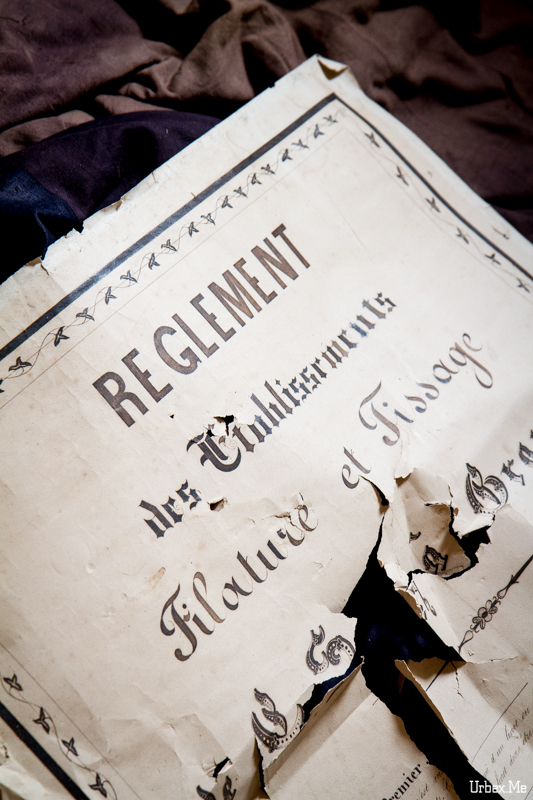 REGLEMENT
des Etablissements
Filature et Tissage
Urbex.Me